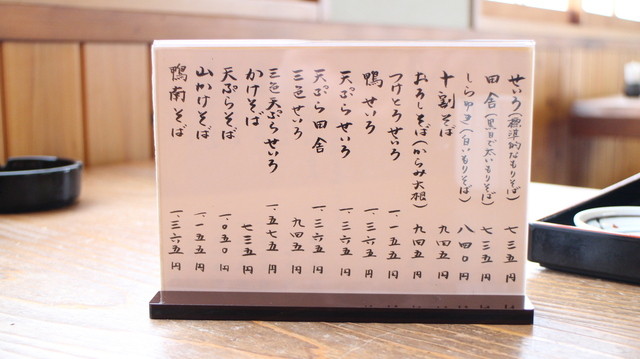 せいろ(標準的なもりそば) 七三五円
田舎(黒目で太いもりそば) 七三五円
しらゆき(白いもりそば) 八四〇円
十割そば 九四五円
おろしそば(からみ大根) 九四五円
つけとろせいろ 一、一五五円
鴨せいろ 一、三六五円
天ぷらせいろ 一、三六五円
天ぷら田舎 一、三六五円
三色せいろ 九四五円
三色天ぷらせいろ 一、五七五円
かけそば 七三五円
天ぷらそば 一、〇五〇円
山かけそば 一、一五五円
鴨南そば 一、三六五円